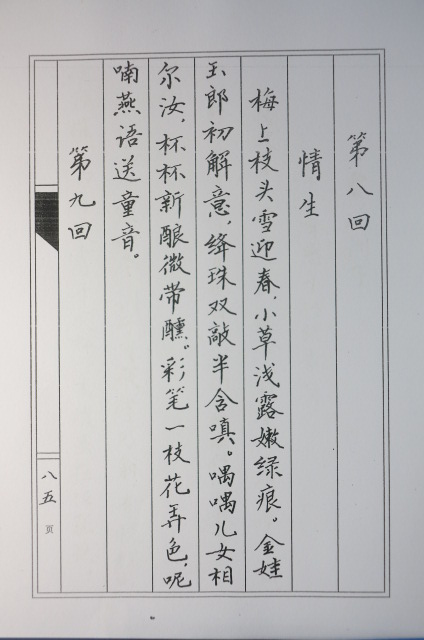 第八回
情生
梅上枝头雪迎春，小草浅露嫩绿痕。金娃
玉郎初解意，绛珠双敲半含嗔。喁喁儿女相
尔汝，杯杯新酿微带醺。彩笔一枝花弄色，呢
喃燕语送童音。
第九回
八五
页